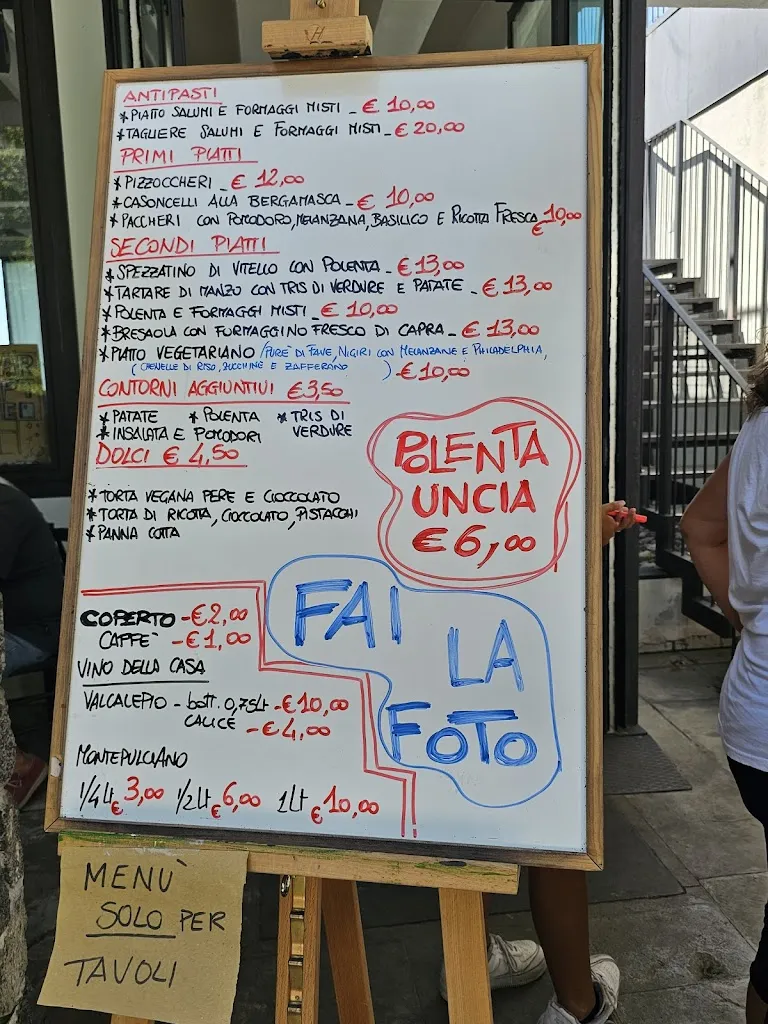 ANTIPASTI
* PIATTO SALUMI E FORMAGGI MISTI - € 10,00
* TAGLIERE SALUMI E FORMAGGI MISTI - € 20,00
PRIMI PIATTI
* PIZZOCCHERI - € 12,00
* CASONCELLI ALLA BERGAMASCA - € 10,00
* PACCHERI CON POMODORO, MELANZANA, BASILICO E RICOTTA FRESCA € 10,00
SECONDI PIATTI
* SPEZZATINO DI VITELLO CON POLENTA - € 13,00
* TARTARE DI MANZO CON TRIS DI VERDURE E PATATE - € 13,00
* POLENTA E FORMAGGI MISTI - € 10,00
* BRESAOLA CON FORMAGGINO FRESCO DI CAPRA - € 13,00
* PIATTO VEGETARIANO (PURE' DI FAVE, NIGIRI CON MELANZANE E PHILADELPHIA,
( CHENELLE DI RISO, ZUCCHINE E ZAFFERANO ) - € 10,00
CONTORNI AGGIUNTIVI € 3,50
* PATATE * POLENTA * TRIS DI
* INSALATA E POMODORI VERDURE
DOLCI € 4,50
* TORTA VEGANA PERE E CIOCCOLATO
* TORTA DI RICOTTA, CIOCCOLATO, PISTACCHI
* PANNA COTTA
POLENTA
UNCIA
€ 6,00
COPERTO - € 2,00
CAFFE' - € 1,00
VINO DELLA CASA
VALCALEPIO - bott. 0,75lt - € 10,00
CALICE - € 4,00
MONTEPULCIANO
1/4 lt € 3,00 1/2 lt € 6,00 1 lt € 10,00
FAI
LA
FOTO
MENÙ
SOLO PER
TAVOLI